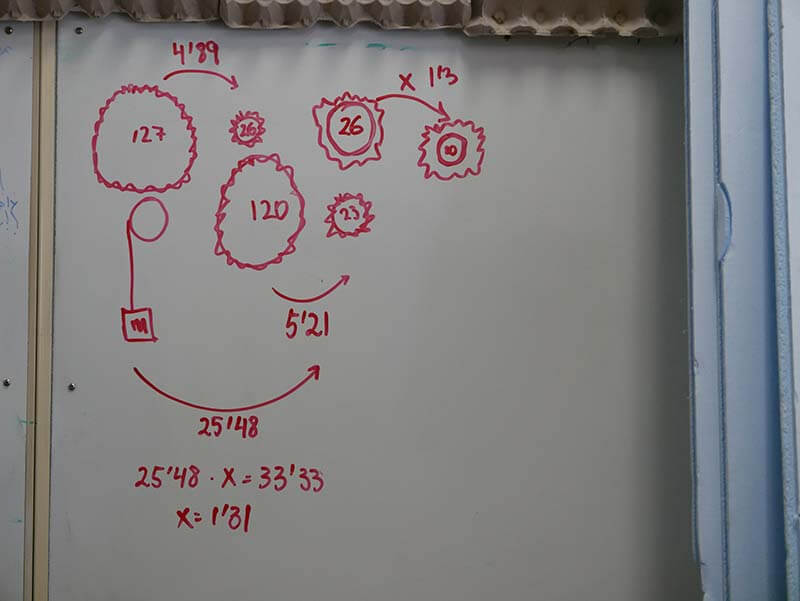 4'89
x 1'3
127
26
26
20
120
23
m
5'21
25'48
25'48 · x = 33'33
x = 1'31